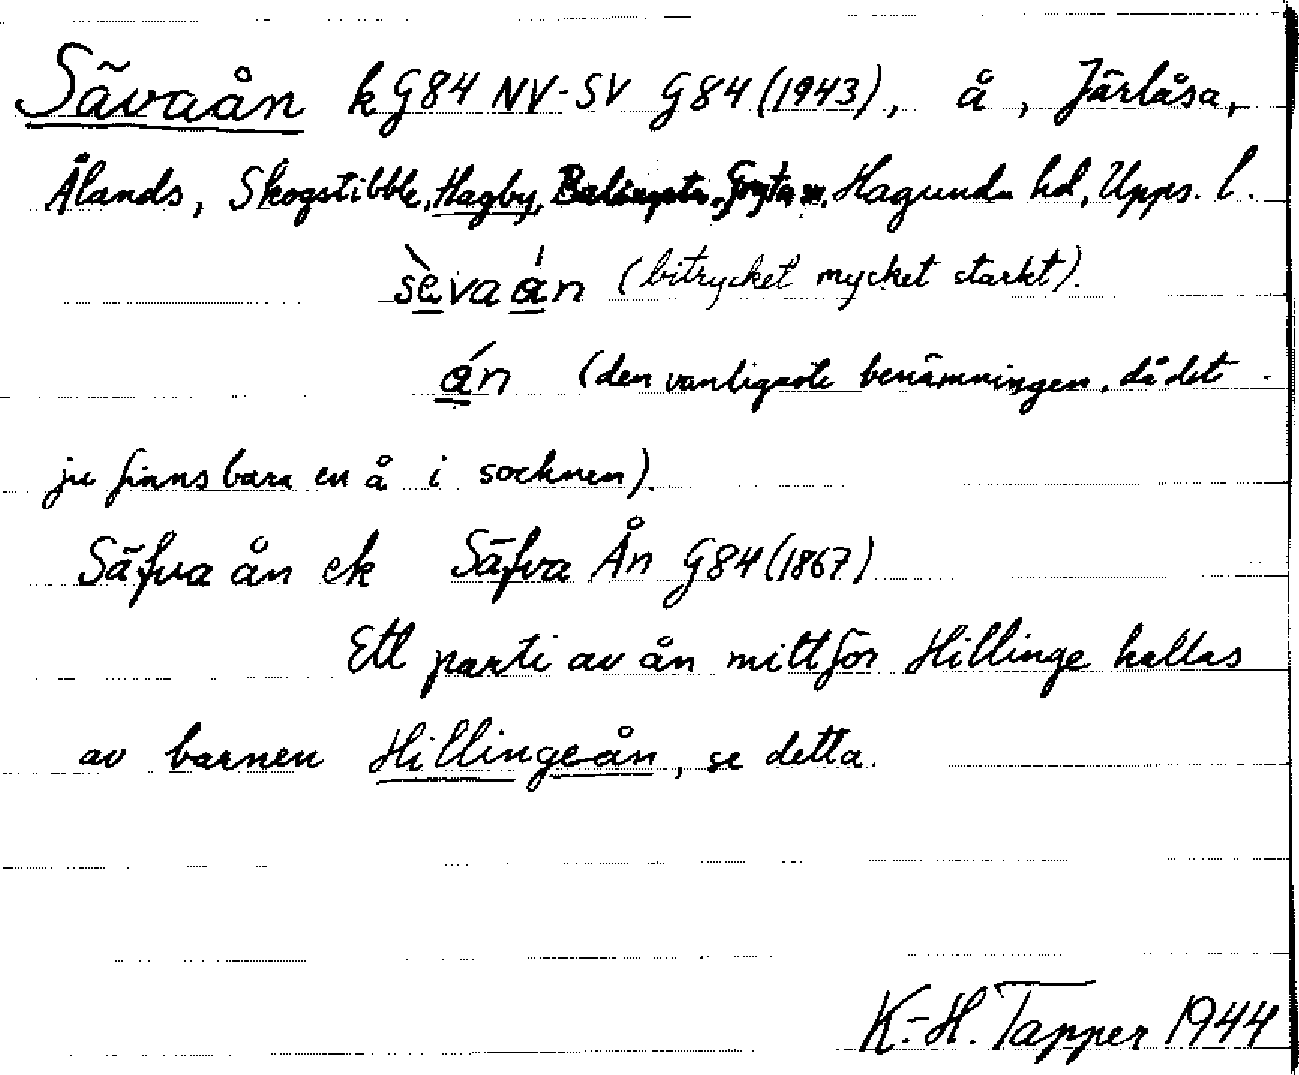 Sävaån k G84 NV-SV G84 (1943), å, Järlåsa,
Ålands, Skogstibble, Hagby, Balingsta, Gryta sn, Hagunda hd, Upps. l.
sèvaån (bitrycket mycket starkt).
ån (den vanligaste benämningen, då det
ju finns bara en å i socknen).
Säfva ån ek Säfva Ån G84 (1867)
Ett parti av ån mittför Hillinge kallas
av barnen Hillingeån, se detta.
K.-H. Tapper 1944